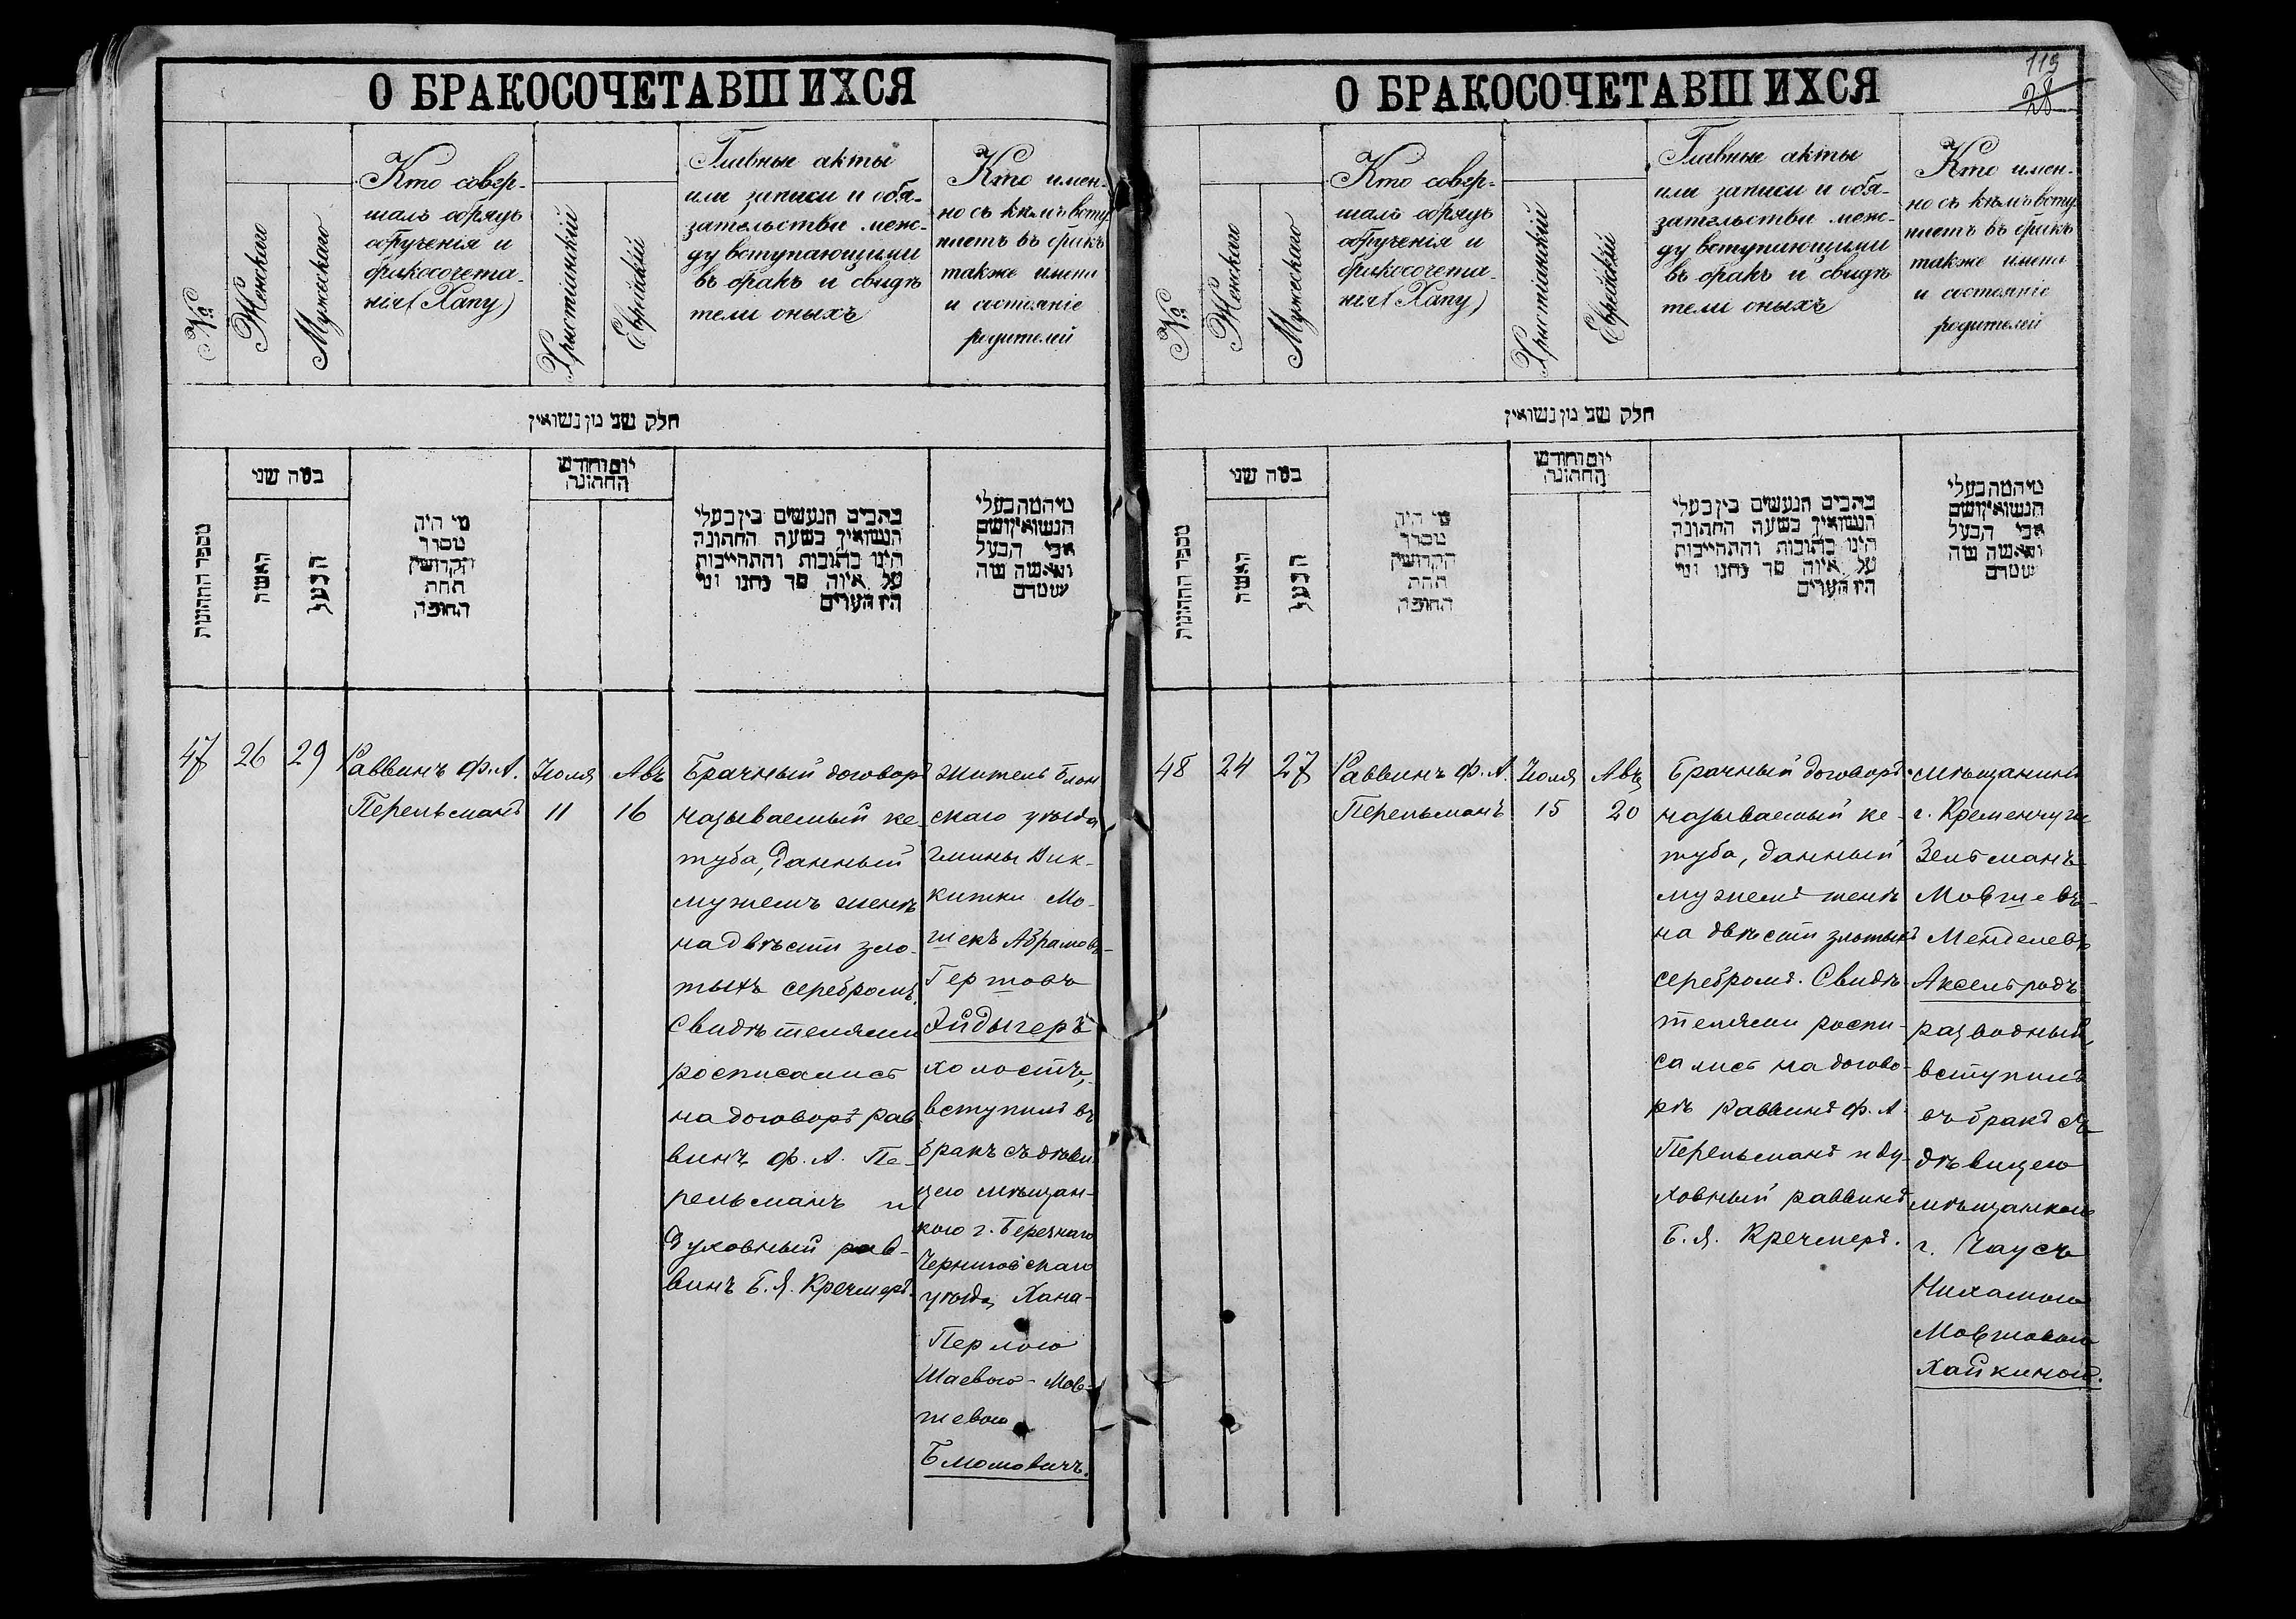 О БРАКОСОЧЕТАВШИХСЯ
№
Женскаго
Мужескаго
Кто совер-
шалъ обрядъ
обрученія и
бракосочета-
нія (Хапу)
Христіанскій
Еврейскій
Главные акты
или записи и обя-
зательства меж-
ду вступающими
въ бракъ и свидѣ
тели оныхъ
Кто имен-
но съ кѣмъ всту
паетъ въ бракъ
также имена
и состояніе
родителей
חלק שני מן נשואין
מספר החתונות
במה שני
האשה
הבעל
מי היה
מסדר
הקדושין
תחת
החופה
יום וחודש
החתונה
כתבים הנעשים בין בעלי
הנשואין בשעה החתונה
היינו כתובות והתחייבות
על איזה סך נתנו ומי
היו העדים
מי המה בעלי
הנשואין ושם
אבי הבעל
והאשה מה
שמם
47
26
29
Раввинъ Ф. А.
Перельманъ
Іюля
11
Авъ
16
Брачный договоръ
называемый ке-
туба, данный
мужемъ женѣ
на двѣсти зло-
тыхъ серебромъ.
Свидѣтелями
росписались
на договорѣ рав
винъ Ф. А. Пе-
рельманъ и
духовный рав-
винъ Б. Я. Кречмеръ.
Житель Блон
скаго уѣзда
гмины Вик-
китки Мо-
шекъ Абрамовъ-
Гершовъ
Айдыгеръ
холостъ,
вступилъ въ
бракъ съ дѣви-
цею мѣщан-
кою г. Березнаго
Черниговскаго
уѣзда Хана-
Перлою
Шаевою-Мов-
шевою
Блюмовичъ.
О БРАКОСОЧЕТАВШИХСЯ
119
28
№
Женскаго
Мужескаго
Кто совер-
шалъ обрядъ
обрученія и
бракосочета-
нія (Хапу)
Христіанскій
Еврейскій
Главные акты
или записи и обя-
зательства меж-
ду вступающими
въ бракъ и свидѣ
тели оныхъ
Кто имен-
но съ кѣмъ всту
паетъ въ бракъ
также имена
и состояніе
родителей
חלק שני מן נשואין
מספר החתונות
במה שני
האשה
הבעל
מי היה
מסדר
הקדושין
תחת
החופה
יום וחודש
החתונה
כתבים הנעשים בין בעלי
הנשואין בשעה החתונה
היינו כתובות והתחייבות
על איזה סך נתנו ומי
היו העדים
מי המה בעלי
הנשואין ושם
אבי הבעל
והאשה מה
שמם
48
24
27
Раввинъ Ф. А.
Перельманъ
Іюля
15
Авъ
20
Брачный договоръ
называемый ке-
туба, данный
мужемъ женѣ
на двѣсти злотыхъ
серебромъ. Свидѣ-
телями роспи-
сались на догово-
рѣ раввинъ Ф. А.
Перельманъ и ду-
ховный раввинъ
Б. Я. Кречмеръ.
мѣщанинъ
г. Кременчуга
Зельманъ-
Мовшевъ-
Менделевъ
Аксельродъ
разводный,
вступилъ
въ бракъ съ
дѣвицею
мѣщанкою
г. Чаусъ
Нихамою
Мовшовою
Хайкиной.